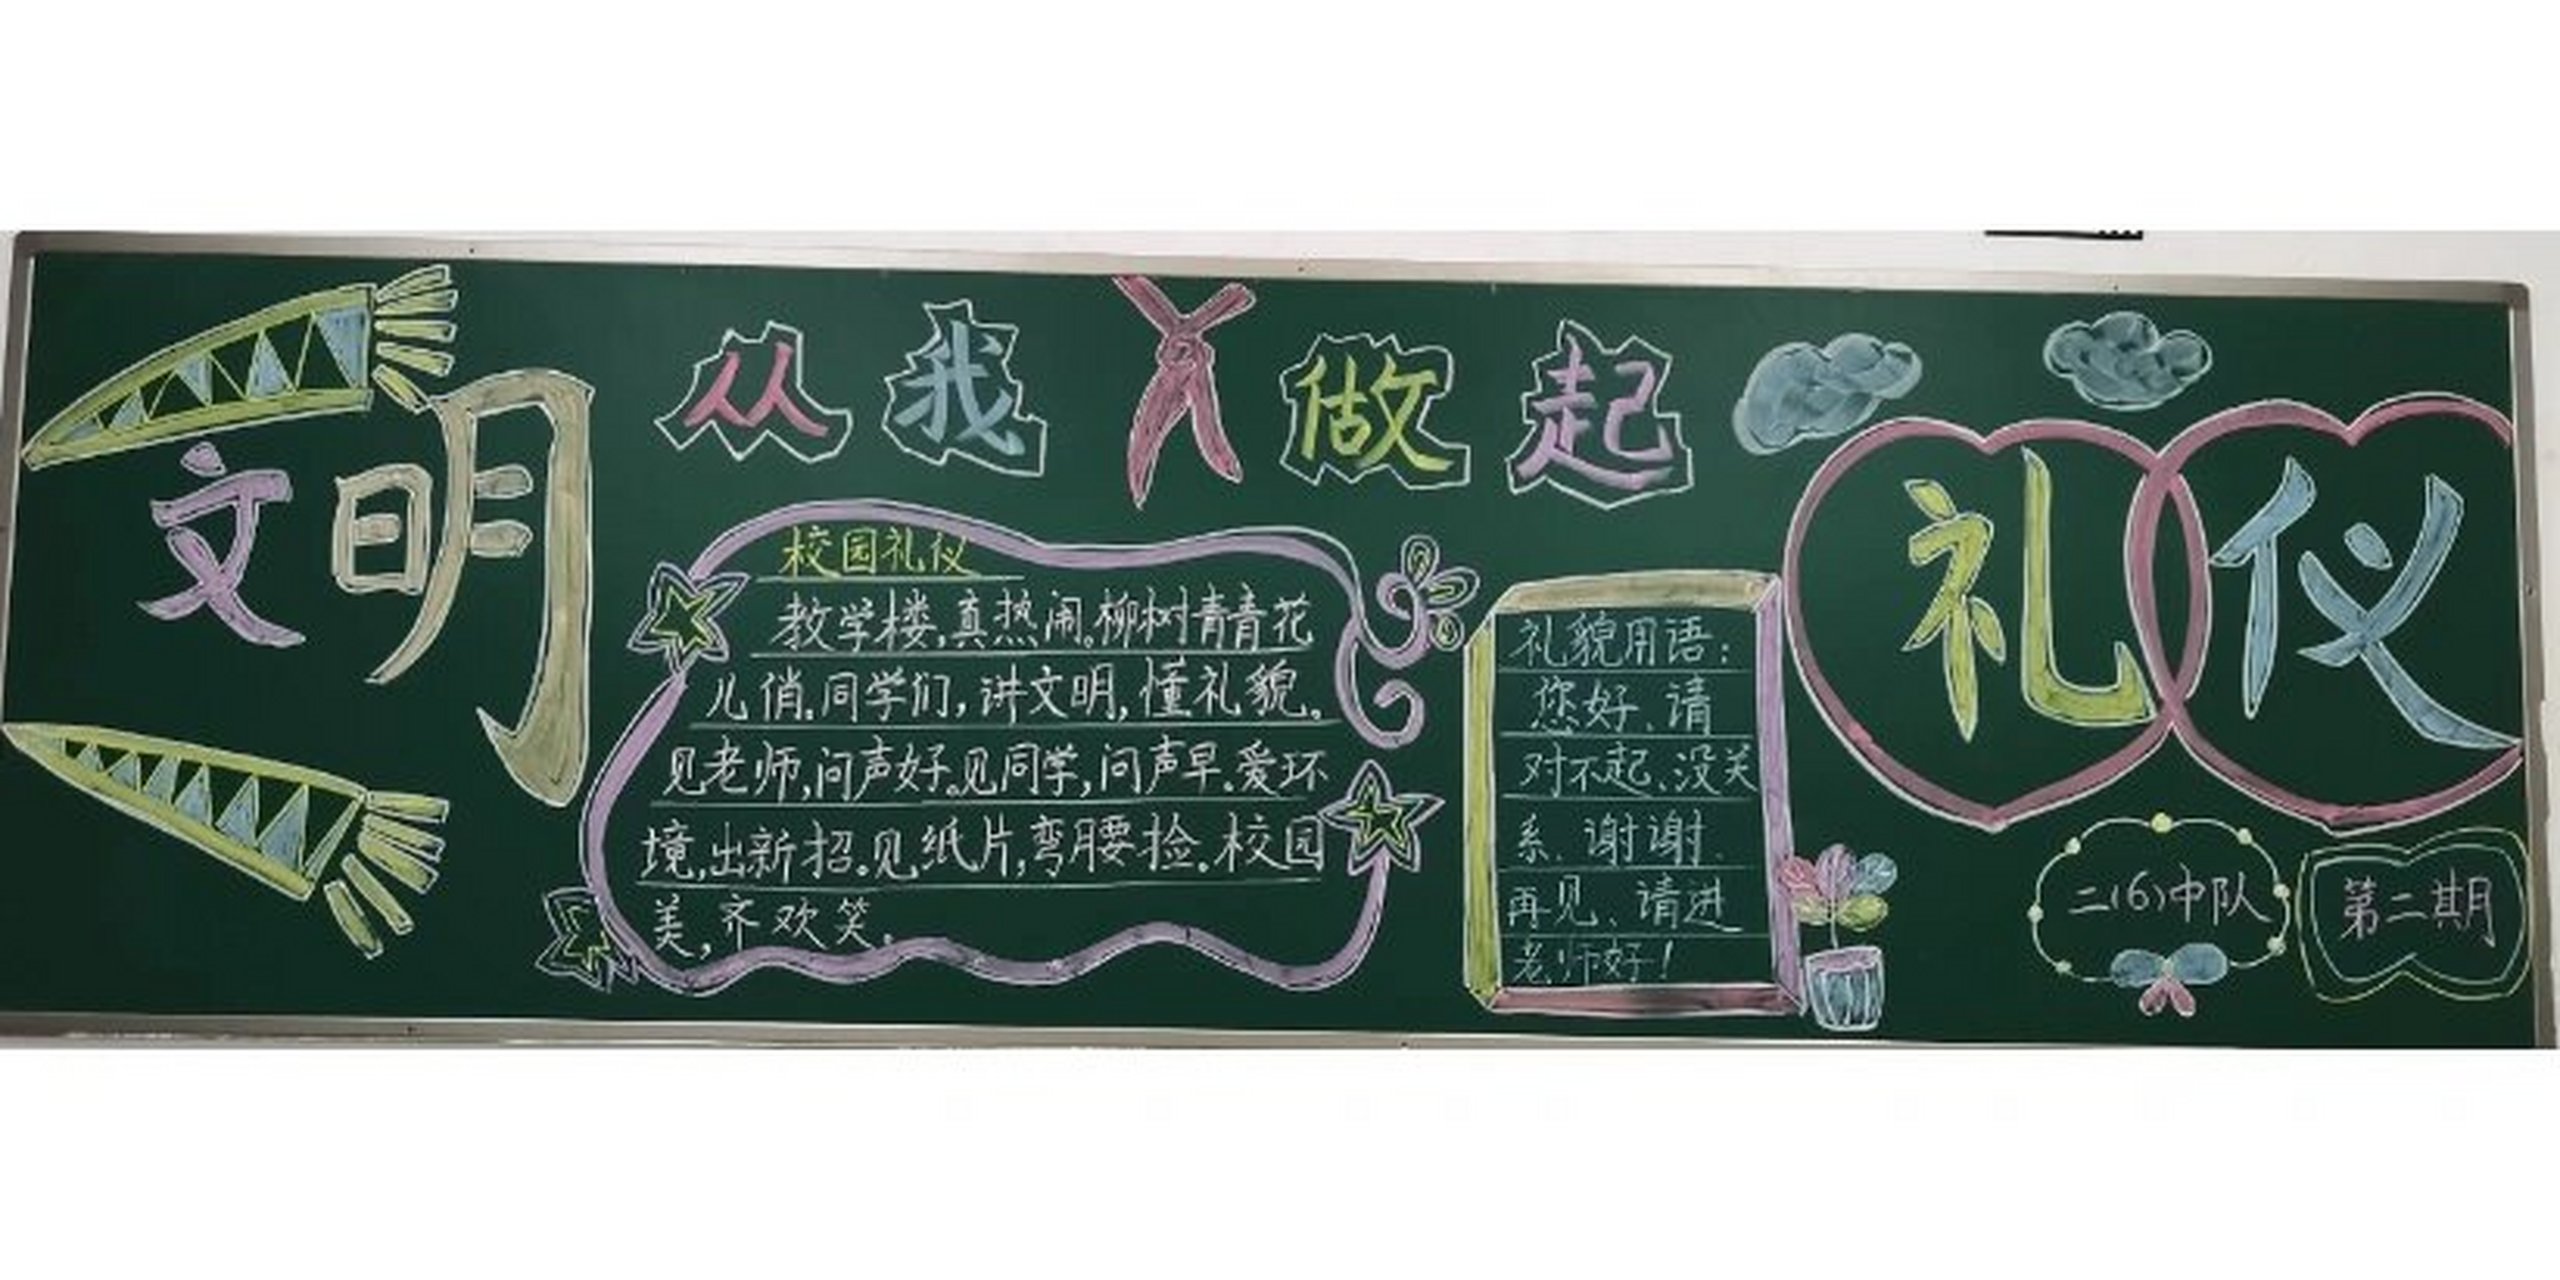 文明
从我做起
礼仪
校园礼仪
教学楼,真热闹。柳树青青花
儿俏。同学们,讲文明,懂礼貌。
见老师,问声好。见同学,问声早。爱环
境,出新招。见纸片,弯腰捡。校园
美,齐欢笑。
礼貌用语:
您好、请
对不起、没关
系、谢谢、
再见、请进
老师好!
二(6)中队
第二期